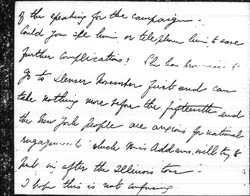 of the speaking for the campaign.
Could you ask him or telephone him, to save
further complications? She has
to go to Denver November first and can
take nothing more before the fifteenth and
the New York people are anxious for national
engagements which Miss Addams will try to
put in after the Illinois tour.
I hope this is not confusing